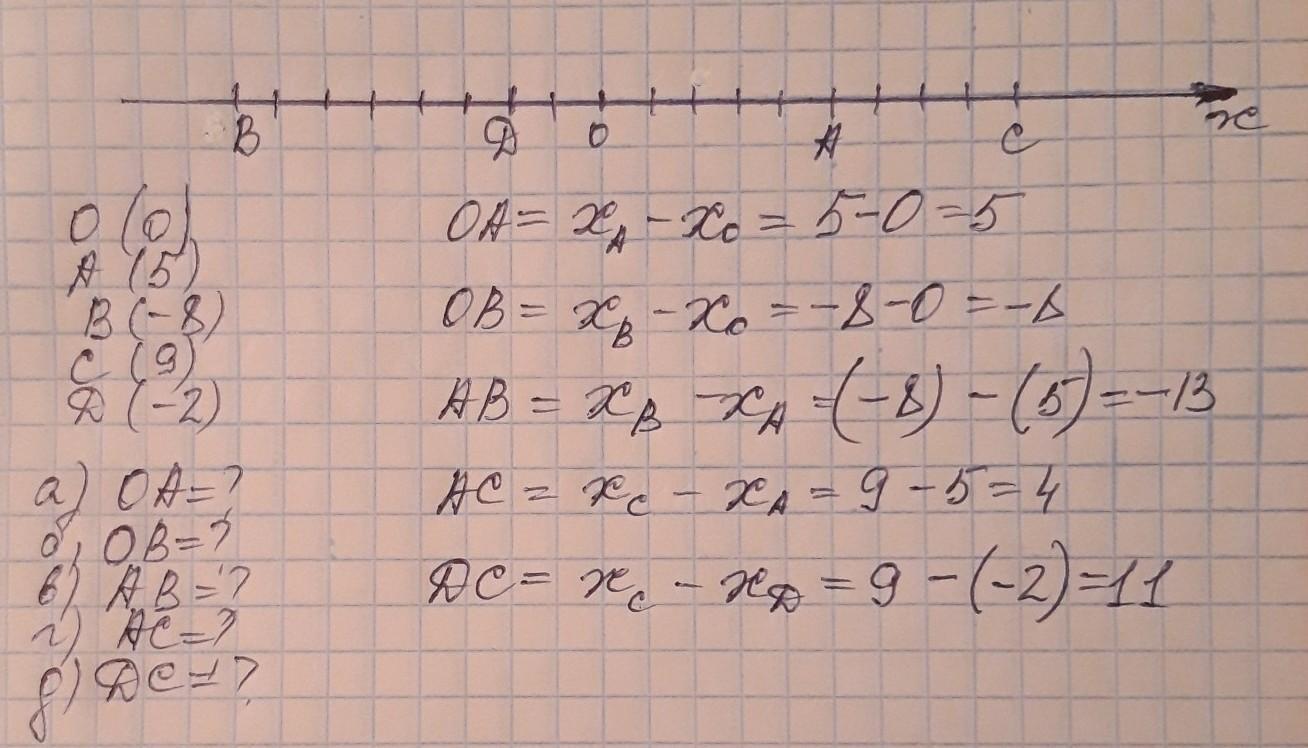 B D O A C x
O (0)
A (5)
B (-8)
C (9)
D (-2)
а) OA=?
б) OB=?
в) AB=?
г) AC=?
д) DC=?
OA= x_A - x_O = 5-0=5
OB= x_B - x_O = -8-0 = -8
AB = x_B - x_A =(-8) - (5)=-13
AC = x_C - x_A = 9 - 5 = 4
DC= x_C - x_D = 9 - (-2)=11